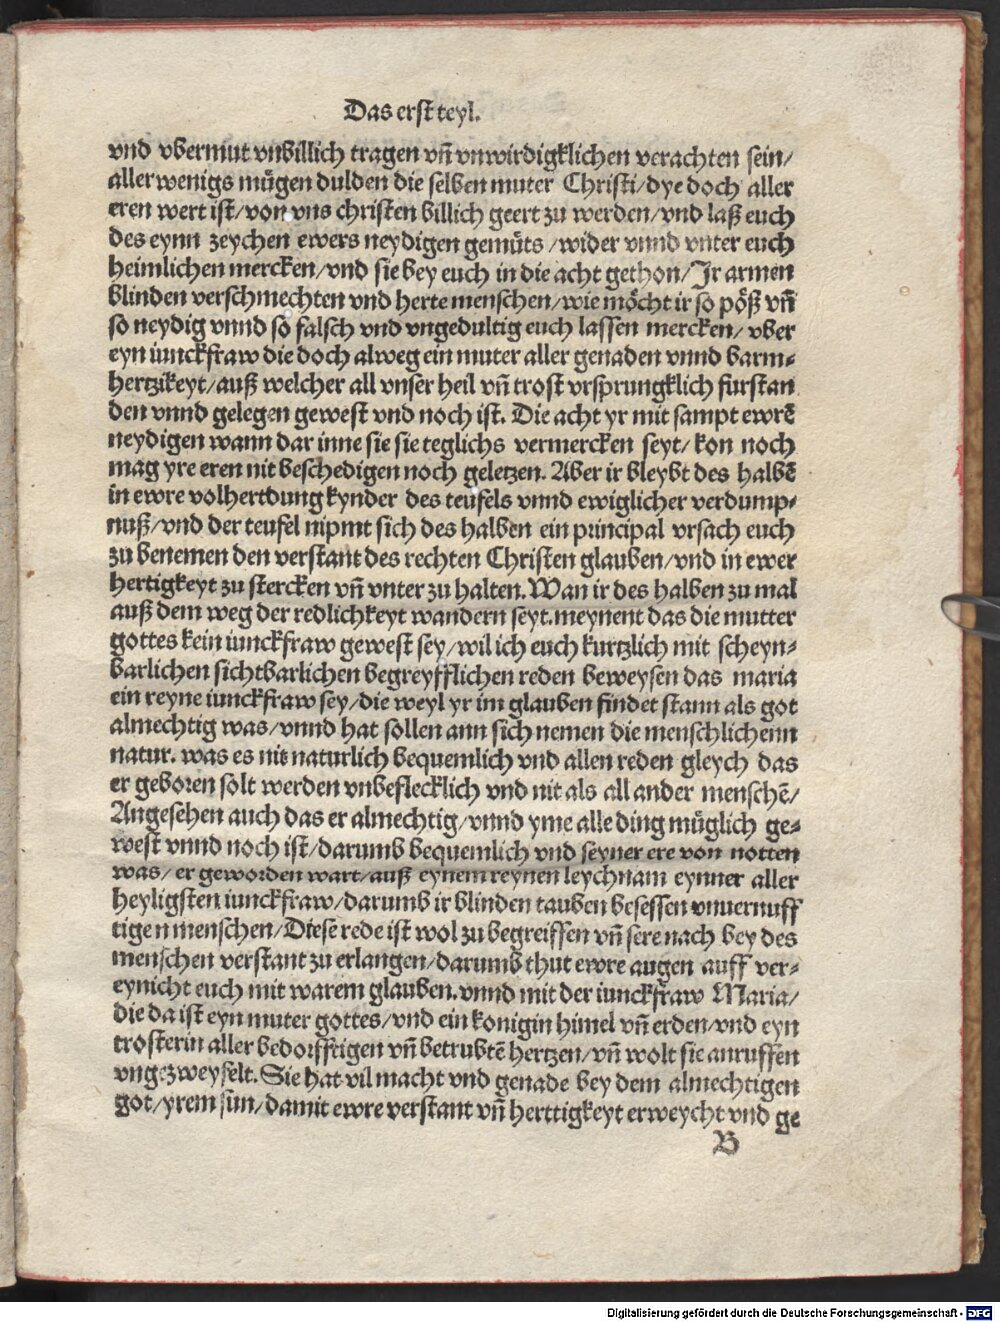 Das erst teyl.
vnd vbermut vnbillich tragen vn̄ vnwirdigklichen verachten sein/
aller wenigs mügen dulden die selben muter Christi/dye doch aller
eren wert ist/von vns christen billich geert zu werden/vnd laß euch
des eynn zeychen ewers neydigen gemüts /wider vnnd vnter euch
heimlichen mercken/vnd sie bey euch in die acht gethon/Jr armen
blinden verschmechten vnd herte menschen/wie möcht ir so pöß vn̄
so neydig vnnd so falsch vnd vngedultig euch lassen mercken/ vber
eyn iunckfraw die doch alweg ein muter aller genaden vnnd barm-
hertzikeyt/auß welcher all vnser heil vn̄ trost vrsprungklich furstan
den vnnd gelegen gewest vnd noch ist. Die acht yr mit sampt ewrē
neydigen wann dar inne sie sie teglichs vermercken seyt/ kon noch
mag yre eren nit beschedigen noch geletzen. Aber ir bleybt des halbē
in ewre volhertdung kynder des teufels vnnd ewiglicher verdump-
nuß/vnd der teufel nipmt sich des halben ein principal vrsach euch
zu benemen den verstant des rechten Christen glauben/vnd in ewer
hertigkeyt zu stercken vn̄ vnter zu halten. Wan ir des halben zu mal
auß dem weg der redlichkeyt wandern seyt. meynent das die mutter
gottes kein iunckfraw gewest sey/wil ich euch kurtzlich mit scheyn-
barlichen sichtbarlichen begreyfflichen reden beweysen das maria
ein reyne iunckfraw sey/die weyl yr im glauben findet stann als got
almechtig was/vnnd hat sollen ann sich nemen die menschlichenn
natur. was es nit naturlich bequemlich vnd allen reden gleych das
er geboren solt werden vnbeflecklich vnd nit als all ander menschē/
Angesehen auch das er almechtig/vnnd yme alle ding müglich ge-
west vnnd noch ist/darumb bequemlich vnd seyner ere von notten
was/ er geworden wart/auß eynem reynen leychnam eynner aller
heyligsten iunckfraw/darumb ir blinden tauben besessen vnuernuff
tigen menschen/Diese rede ist wol zu begreiffen vn̄ sere nach bey des
menschen verstant zu erlangen/darumb thut ewre augen auff ver-
eynicht euch mit warem glauben. vnnd mit der iunckfraw Maria/
die da ist eyn muter gottes/vnd ein konigin himel vn̄ erden/vnd eyn
trosterin aller bedorfftigen vn̄ betrubtē hertzen/vn̄ wolt sie anruffen
vngezweyfelt. Sie hat vil macht vnd genade bey dem almechtigen
got/yrem sun/damit ewre verstant vn̄ herttigkeyt erweycht vnd ge
B
Digitalisierung gefördert durch die Deutsche Forschungsgemeinschaft - DFG